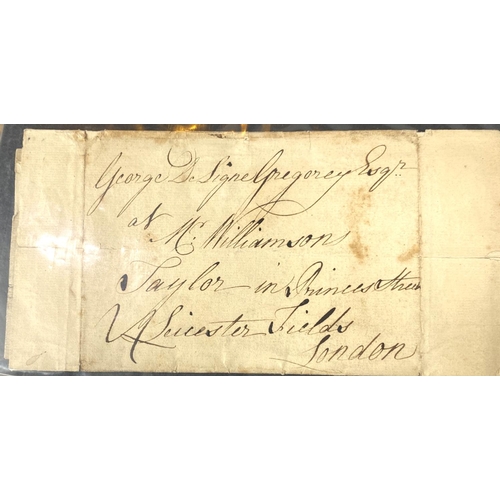 George De Ligne Gregorey Esqr.
at Mr. Williamson
Taylor in Princes Street
Leicester Fields
London